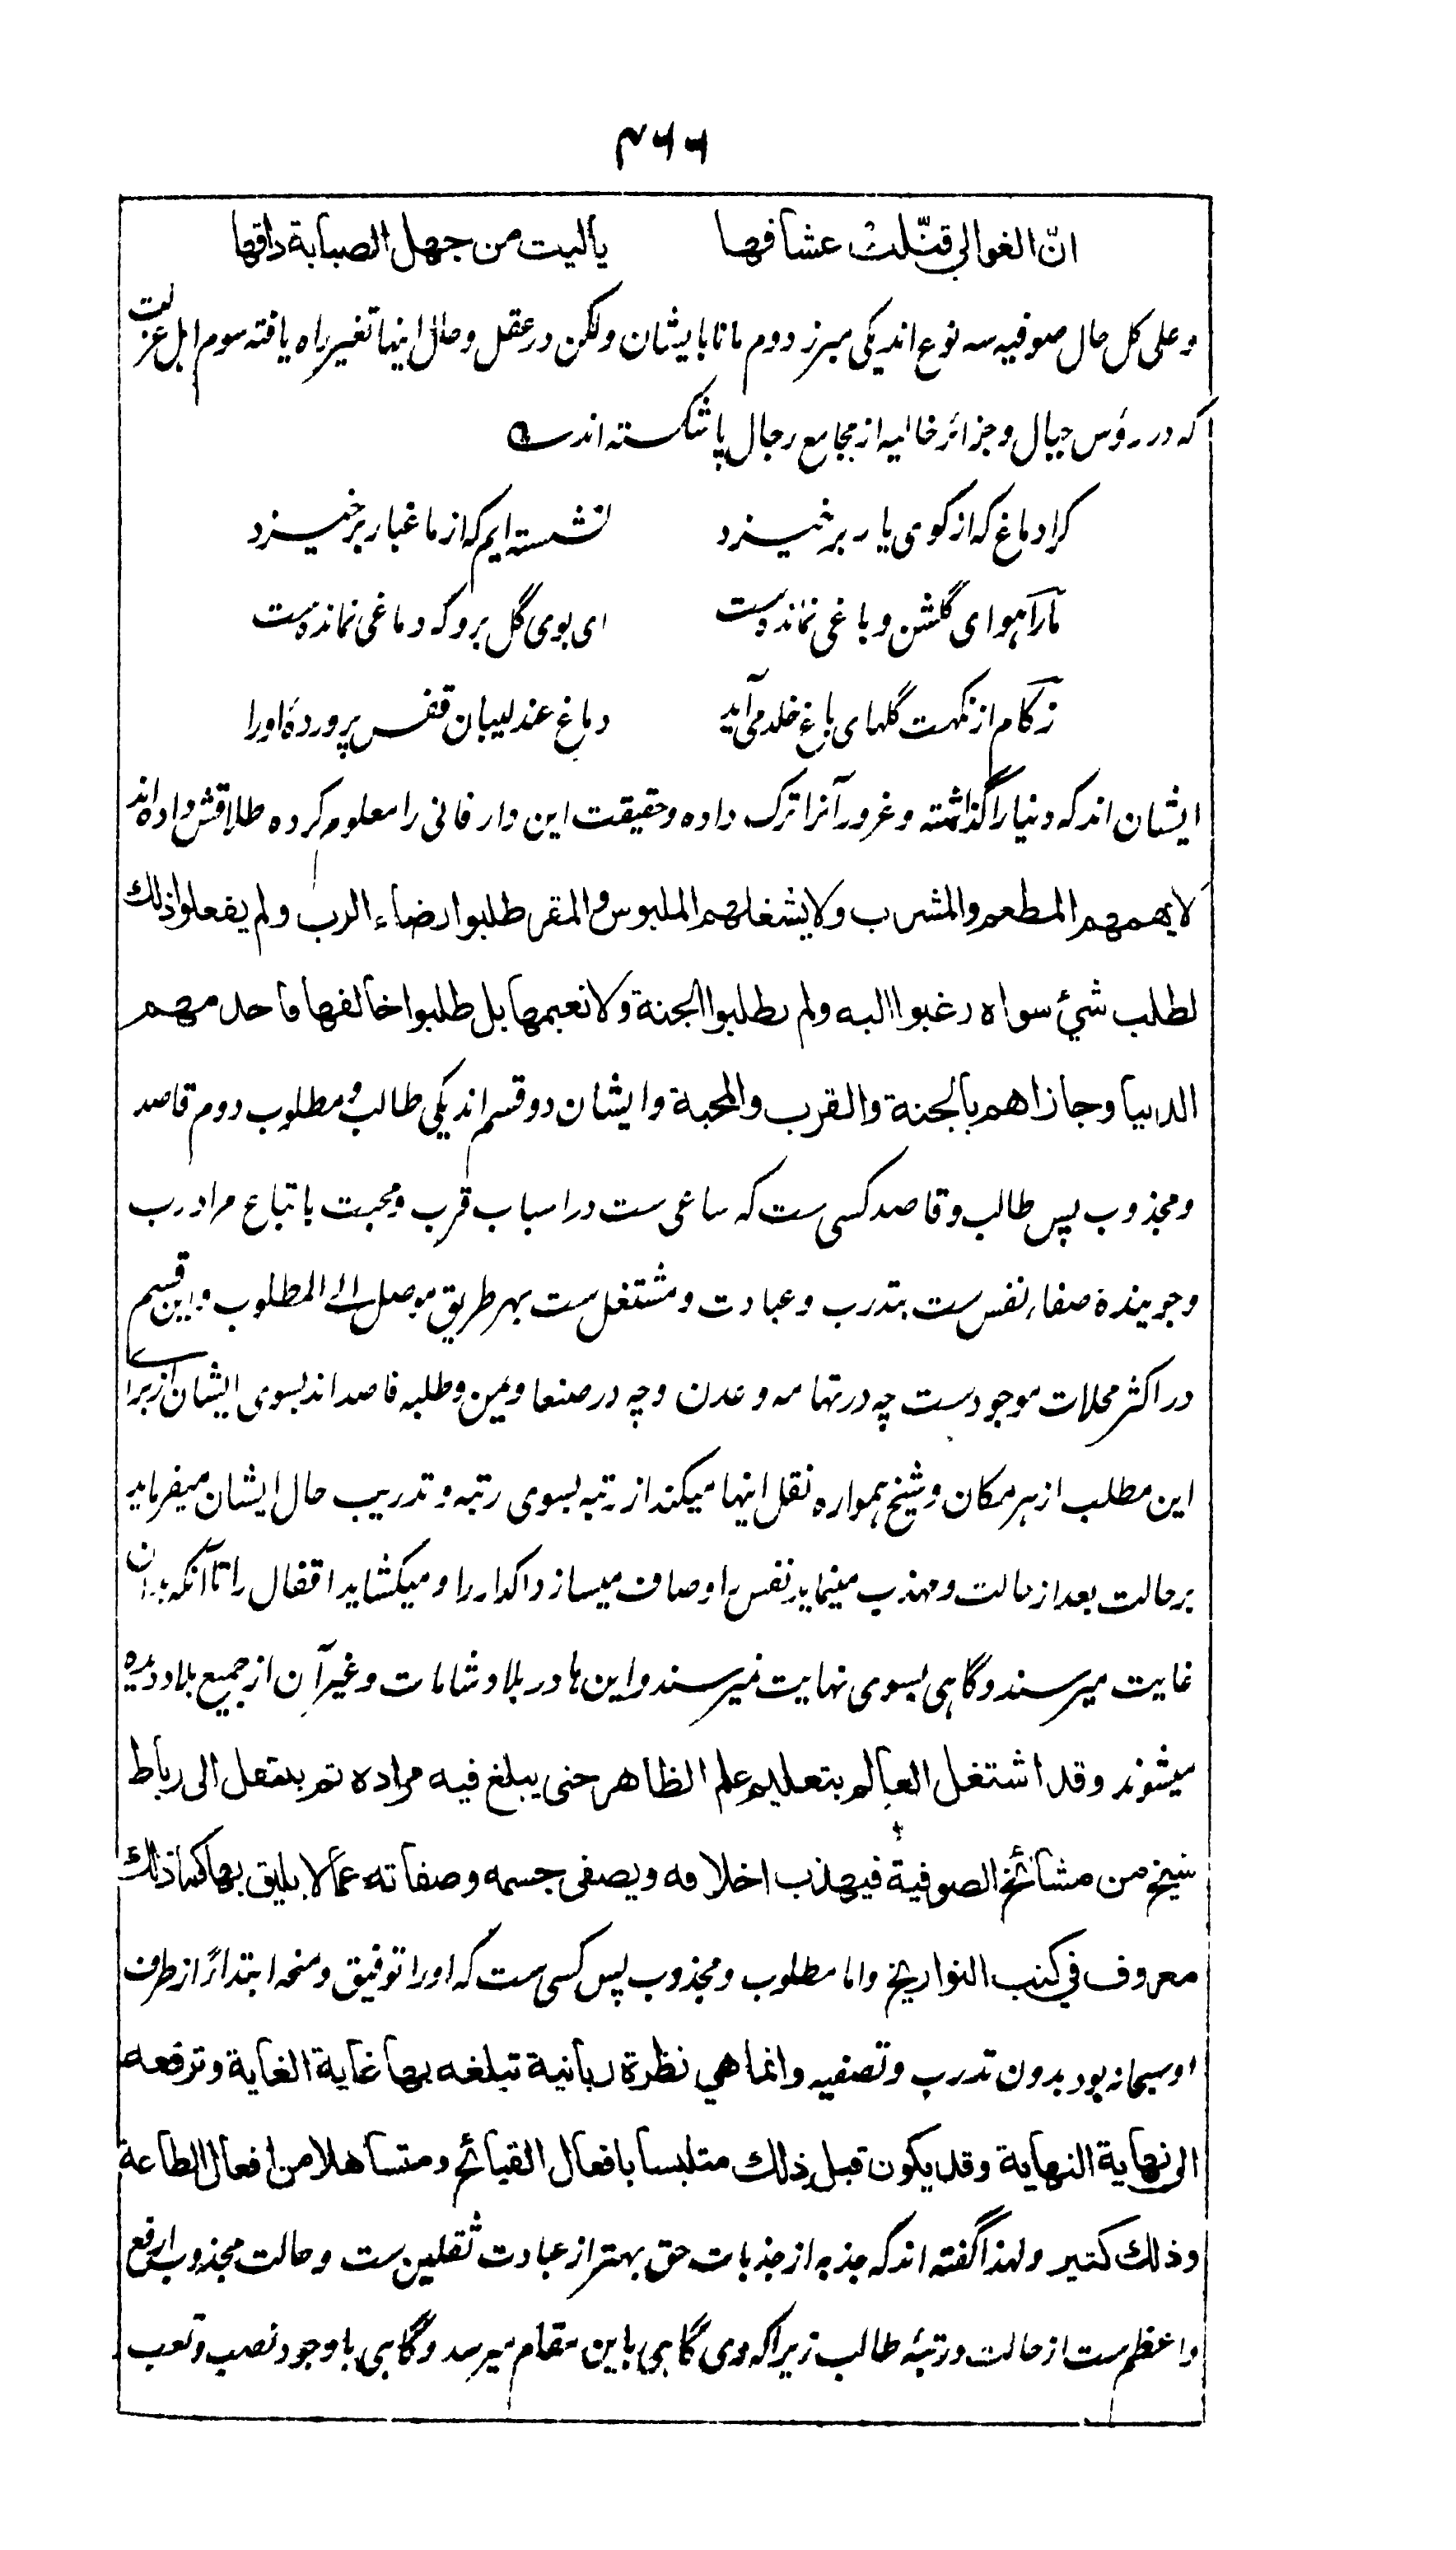 ۴۶۶
انّ الغوالي قتّلت عشاقها یالیت من جهل الصبابة ذاقها
وعلی کل حال صوفیه سه نوع اند یکی مبرز دوم مانا بایشان ولکن در عقل وحال اینها تغییر راه یافته سوم اہل عزلت
که در رؤس جبال وجزائر خالیه از مجامع رجال پا شکسته اند
کرا دماغ که از کوی یار برخیزد نشسته ایم که از ما غبار برخیزد
مارا ہوای گلشن وباغی نماندہ ست ای بوی گل برو که دماغی نماندہ ست
زکام از نکهت گلهای باغ خلد می آید دماغ عندلیبان قفس پروردۂ او را
ایشان اند که دنیا را گذاشته وغرور آنرا ترک داده وحقیقت این دار فانی را معلوم کرده طلاقش داده اند
لا یهمهم المطعم والمشرب ولا یشغلهم الملبوس والمقر طلبوا رضاء الرب ولم یفعلوا ذلك
لطلب شيء سواه رغبوا الیه ولم یطلبوا الجنة ولا نعیمها بل طلبوا خالقها فاخدمهم
الدنیا وجازاهم بالجنة والقرب والمحبة وایشان دو قسم اند یکی طالب ومطلوب دوم قاصد
ومجذوب پس طالب وقاصد کسی ست که ساعی ست در اسباب قرب ومحبت باتباع مراد رب
وجوینده صفاء نفس ست بتدرب وعبادت ومشتغل ست بہر طریق موصل الی المطلوب واین قسم
در اکثر محلات موجودست چه در تهامه وعدن وچه در صنعا ویمن وطلبه قاصد اند بسوی ایشان از برای
این مطلب از ہر مکان وشیخ ہموارہ نقل اینها میکند از رتبه بسوی رتبه وتدریب حال ایشان میفرماید
بر حالت بعد از حالت ومهذب مینماید نفس را وصاف میسازد اکدار را ومیکشاید اقفال را تا آنکه بدان
غایت میرسند وگاہی بسوی نهایت نمیرسند واین ها در بلاد شامات وغیر آن از جمیع بلاد دیده
میشوند وقد اشتغل العالم بتعلیم علم الظاهر حتی یبلغ فیه مراده ثم ینتقل الی رباط
شیخ من مشائخ الصوفیة فیهذب اخلاقه ویصفی جسمه وصفاته عما لا یلیق بها کما ذلك
معروف في کتب التواریخ واما مطلوب ومجذوب پس کسی ست که او را توفیق ومنحه ابتداءً از طرف
او سبحانه بود بدون تدرب وتصفیه وانما هي نظرة ربانیة تبلغه بها غایة الغایة وترفعه
الی نهایة النهایة وقد یکون قبل ذلك متلبسا بافعال القبائح ومتساهلا من افعال الطاعة
وذلك کثیر ولهذا گفته اند که جذبه از جذبات حق بہتر از عبادت ثقلین ست وحالت مجذوب ارفع
واعظم ست از حالت ورتبۂ طالب زیرا که وی گاہی باین مقام میرسد وگاہی باوجود نصب وتعب